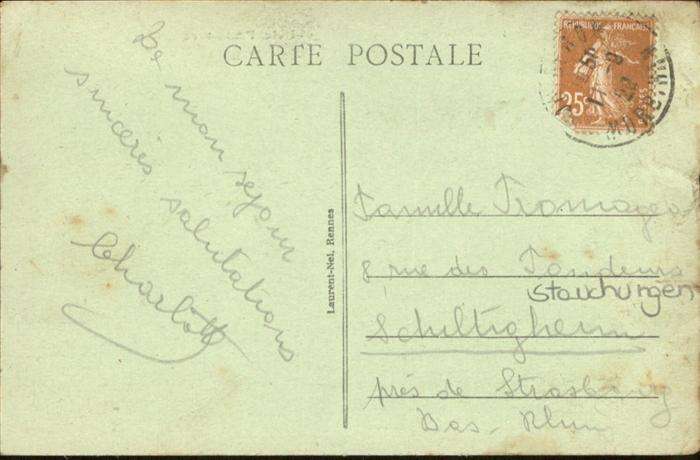 CARTE POSTALE
REPUBLIQUE FRANÇAISE
25c
MORBIHAN
De mon séjour
sincères salutations
Charlott
Laurent-Nel, Rennes
Famille Fromager
8 rue des Tondeurs
Stauchungen
Schiltigheim
près de Strasbourg
Bas-Rhin